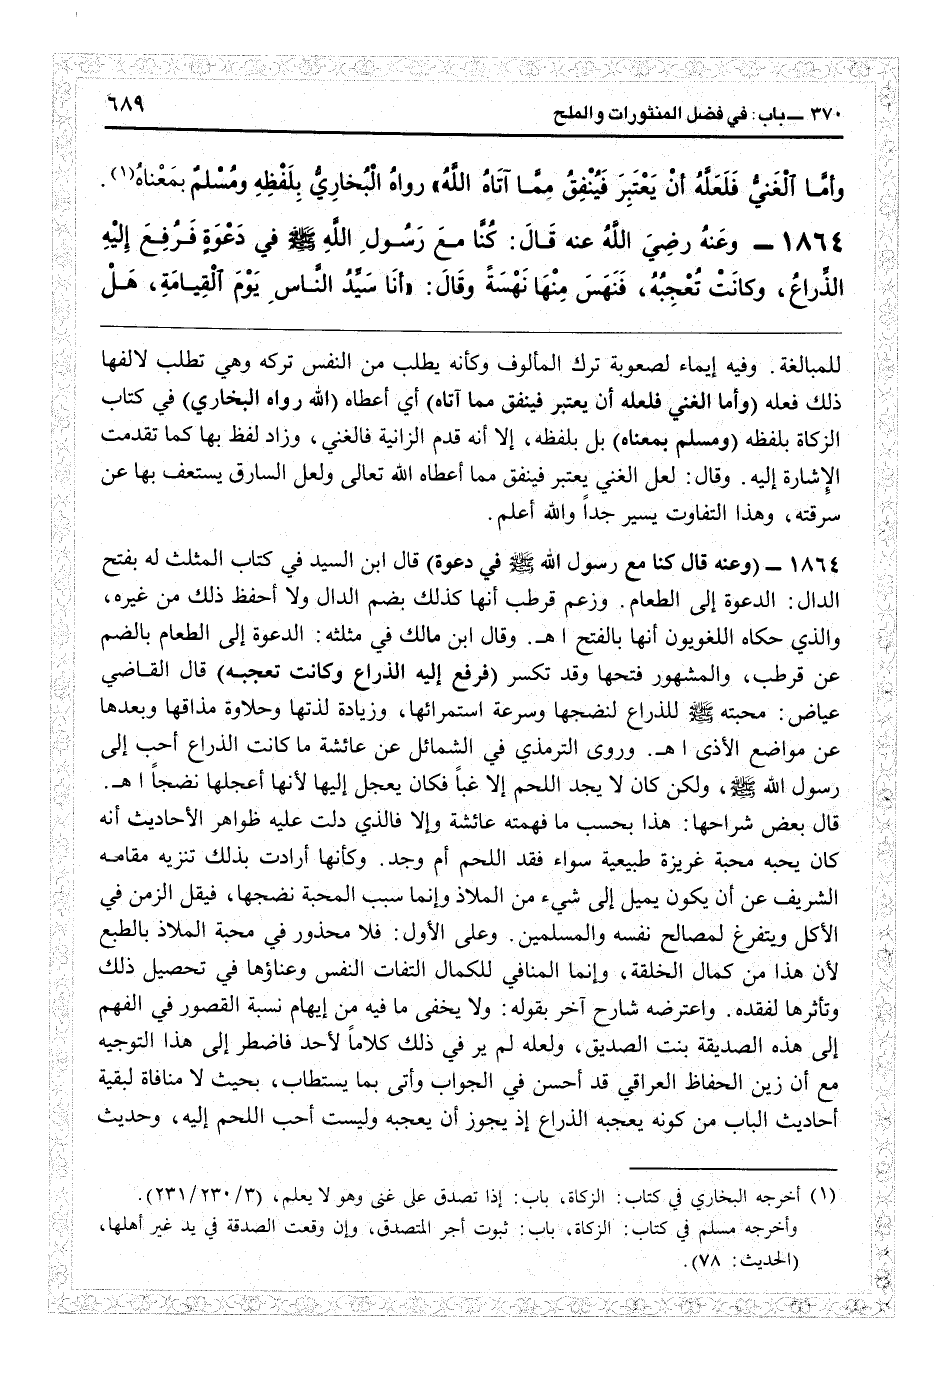 ٣٧٠ ـ باب: في فضل المنثورات والملح
٦٨٩
وأمَّا ٱلْغَنيُّ فَلَعَلَّهُ أنْ يَعْتَبِرَ فَيُنْفِقُ مِمَّا آتَاهُ اللَّهُ» رواهُ الْبُخاريُّ بِلَفْظِهِ ومُسْلمٌ بمَعْناهُ(١).
١٨٦٤ ـ وعَنهُ رضِيَ اللَّهُ عنه قَالَ: كُنَّا معَ رَسُولِ اللَّهِ ﷺ في دَعْوَةٍ فَرُفِعَ إليْهِ
الذِّراعُ، وكانَتْ تُعْجِبُهُ، فَنَهَسَ مِنْهَا نَهْسَةً وقَالَ: «أنَا سَيِّدُ النَّاسِ يَوْمَ ٱلْقِيامَةِ، هَلْ
للمبالغة. وفيه إيماء لصعوبة ترك المألوف وكأنه يطلب من النفس تركه وهي تطلب لالفها
ذلك فعله (وأما الغني فلعله أن يعتبر فينفق مما آتاه) أي أعطاه (الله رواه البخاري) في كتاب
الزكاة بلفظه (ومسلم بمعناه) بل بلفظه، إلا أنه قدم الزانية فالغني، وزاد لفظ بها كما تقدمت
الإشارة إليه. وقال: لعل الغني يعتبر فينفق مما أعطاه الله تعالى ولعل السارق يستعف بها عن
سرقته، وهذا التفاوت يسير جداً والله أعلم.
١٨٦٤ ـ (وعنه قال كنا مع رسول الله ﷺ في دعوة) قال ابن السيد في كتاب المثلث له بفتح
الدال: الدعوة إلى الطعام. وزعم قرطب أنها كذلك بضم الدال ولا أحفظ ذلك من غيره،
والذي حكاه اللغويون أنها بالفتح ا هـ. وقال ابن مالك في مثلثه: الدعوة إلى الطعام بالضم
عن قرطب، والمشهور فتحها وقد تكسر (فرفع إليه الذراع وكانت تعجبه) قال القاضي
عياض: محبته ﷺ للذراع لنضجها وسرعة استمرائها، وزيادة لذتها وحلاوة مذاقها وبعدها
عن مواضع الأذى ا هـ. وروى الترمذي في الشمائل عن عائشة ما كانت الذراع أحب إلى
رسول الله ﷺ، ولكن كان لا يجد اللحم إلا غباً فكان يعجل إليها لأنها أعجلها نضجاً ا هـ.
قال بعض شراحها: هذا بحسب ما فهمته عائشة وإلا فالذي دلت عليه ظواهر الأحاديث أنه
كان يحبه محبة غريزة طبيعية سواء فقد اللحم أم وجد. وكأنها أرادت بذلك تنزيه مقامه
الشريف عن أن يكون يميل إلى شيء من الملاذ وإنما سبب المحبة نضجها، فيقل الزمن في
الأكل ويتفرغ لمصالح نفسه والمسلمين. وعلى الأول: فلا محذور في محبة الملاذ بالطبع
لأن هذا من كمال الخلقة، وإنما المنافي للكمال التفات النفس وعناؤها في تحصيل ذلك
وتأثرها لفقده. واعترضه شارح آخر بقوله: ولا يخفى ما فيه من إيهام نسبة القصور في الفهم
إلى هذه الصديقة بنت الصديق، ولعله لم ير في ذلك كلاماً لأحد فاضطر إلى هذا التوجيه
مع أن زين الحفاظ العراقي قد أحسن في الجواب وأتى بما يستطاب، بحيث لا منافاة لبقية
أحاديث الباب من كونه يعجبه الذراع إذ يجوز أن يعجبه وليست أحب اللحم إليه، وحديث
(١) أخرجه البخاري في كتاب: الزكاة، باب: إذا تصدق على غنى وهو لا يعلم، (٢٣١/٢٣٠/٣).
وأخرجه مسلم في كتاب: الزكاة، باب: ثبوت أجر المتصدق، وإن وقعت الصدقة في يد غير أهلها،
(الحديث: ٧٨).